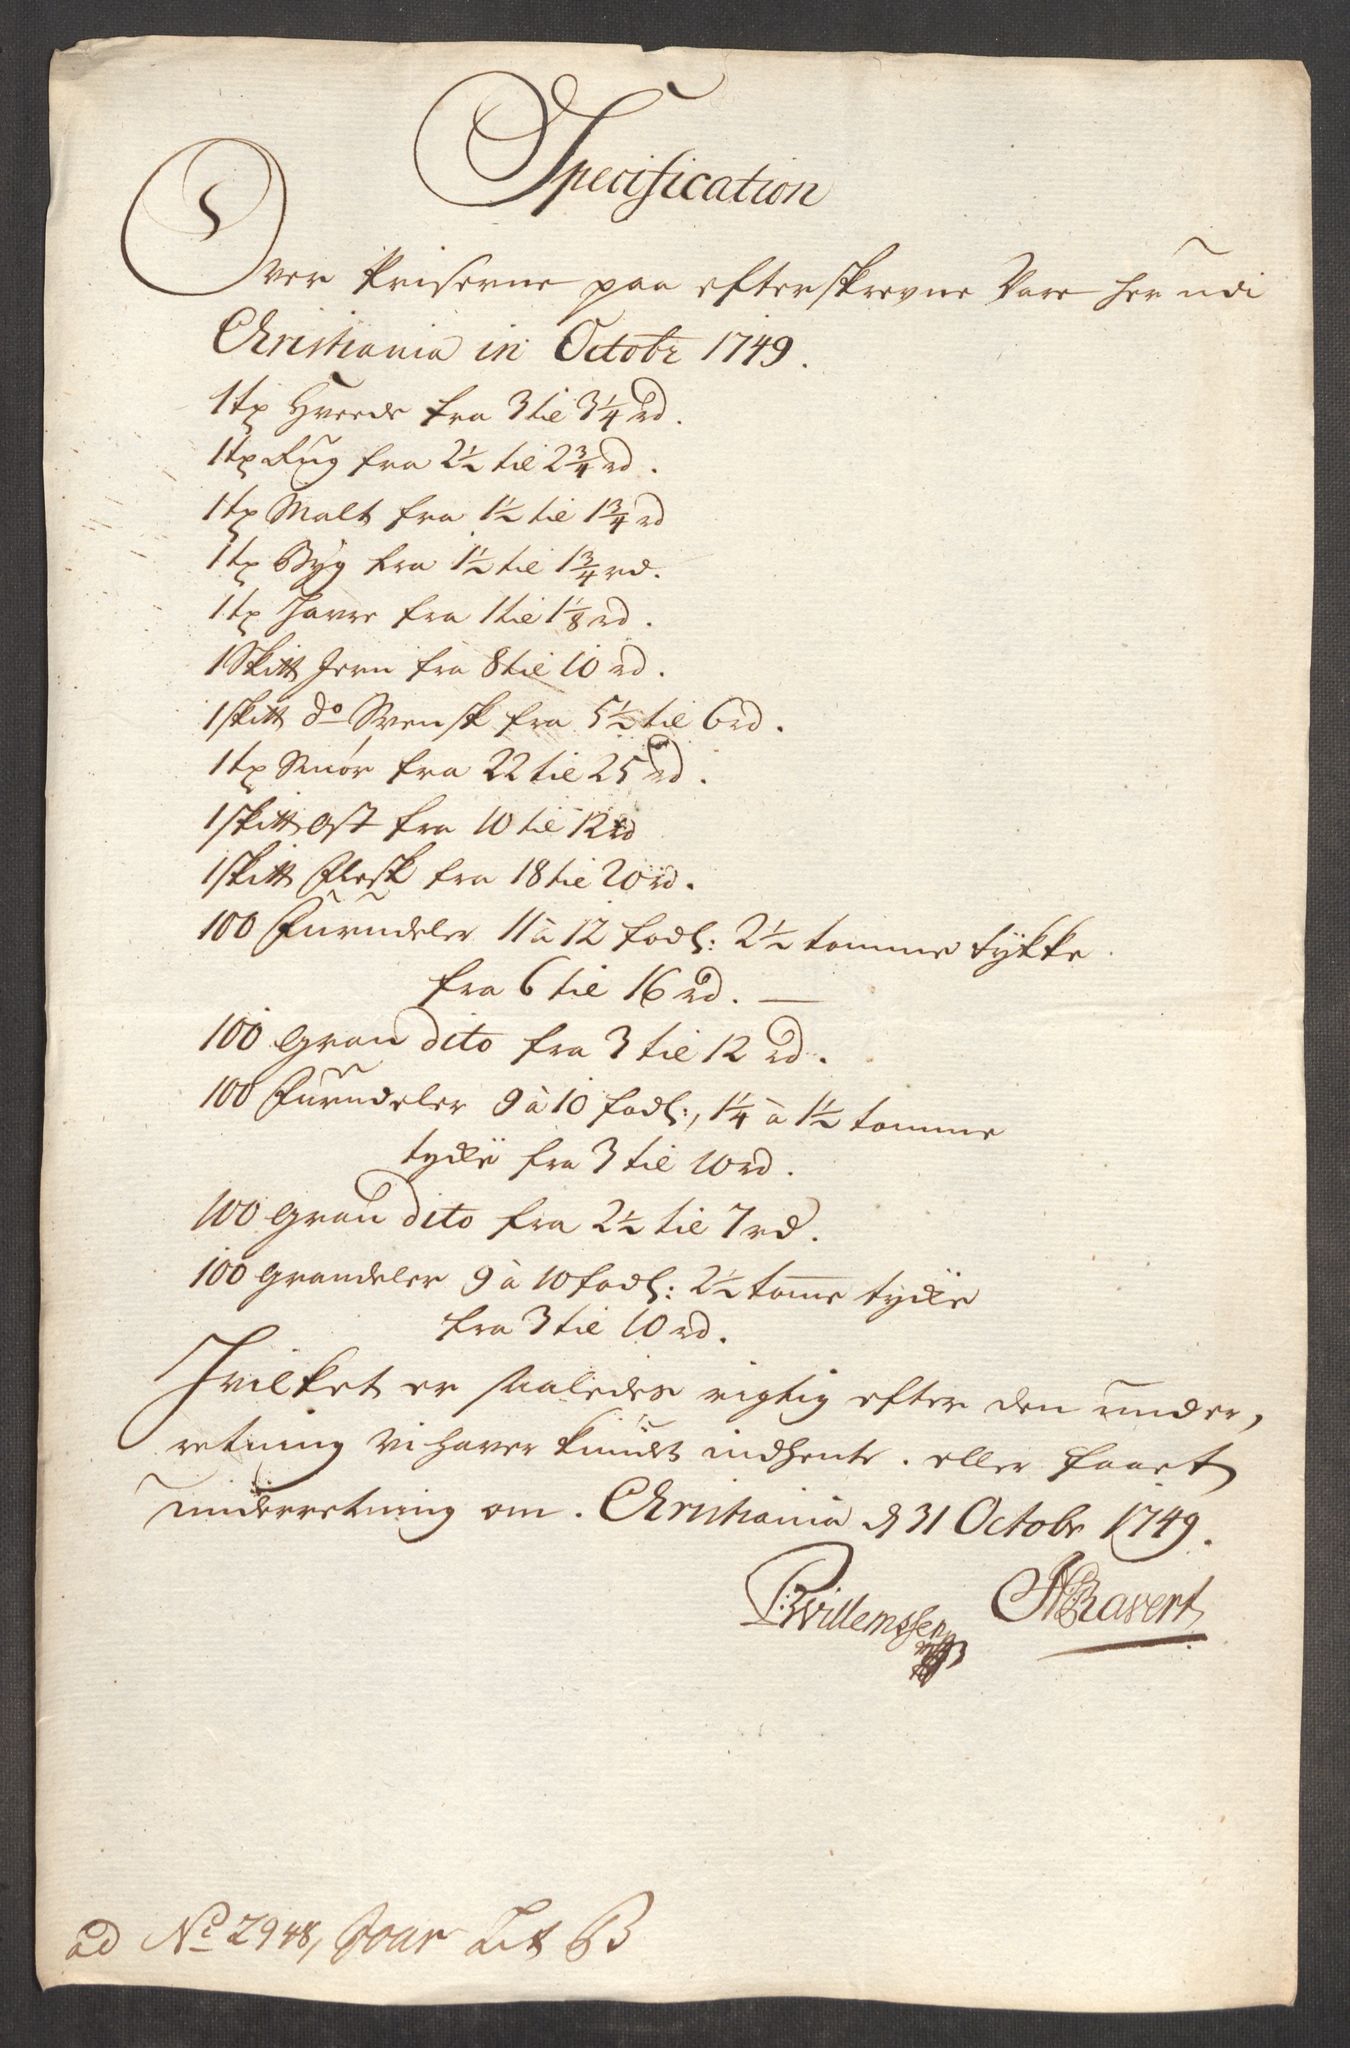 Specification
Over Priserne paa efterskrevne Vare her udi
Christiania in Octobr 1749.
1 tø Hvede fra 3 til 3 1/4 rd.
1 tø Rug fra 2 1/2 til 2 3/4 rd.
1 tø Malt fra 1 1/2 til 1 3/4 rd
1 tø Byg fra 1 1/2 til 1 3/4 rd.
1 tø Havre fra 1 til 1 1/8 rd.
1 Skitt Jern fra 8 til 10 rd.
1 skitt do Svensk fra 5 1/2 til 6 rd.
1 tø Smör fra 22 til 25 rd.
1 skitt Ost fra 10 til 12 rd
1 skitt Flesk fra 18 til 20 rd.
100 Furudeler 11 à 12 fods: 2 1/2 tomme tykke
fra 6 til 16 rd. —
100 gran dito fra 3 til 12 rd.
100 Furudeler 9 à 10 fods:, 1 1/4 à 1 1/2 tomme
tycke fra 3 til 10 rd.
100 gran dito fra 2 1/2 til 7 rd.
100 grandeler 9 à 10 fods: 2 1/2 tome tycke
fra 3 til 10 rd.
Hvilket er saaledes rigtig efter den under,
retning Vi haver kundet indhente. eller faaet
underretning om. Christiania d 31 Octobr 1749.
P:Willemssen NRavert
ad No 2948, Jour Lit B